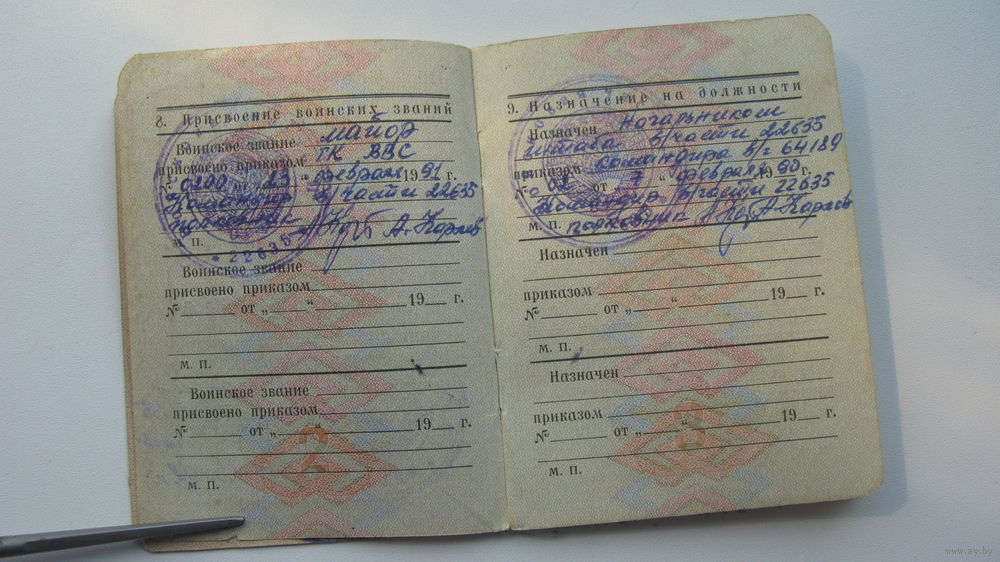 8. Присвоение воинских званий
Воинское звание майор
присвоено приказом ГК ВВС
№ 0200 от „ 23 “ февраля 1991 г.
Командир в/части 22635
полковник А. Караев
М. П.
* 22635 *
Воинское звание
присвоено приказом
№ от „ “ 19 г.
М. П.
Воинское звание
присвоено приказом
№ от „ “ 19 г.
М. П.
9. Назначение на должности
Назначен Начальником
штаба в/части 22635
приказом командира в/ч 64189
№ 02 от „ 7 “ февраля 1990 г.
Командир в/части 22635
М. П. полковник А. Караев
Назначен
приказом
№ от „ “ 19 г.
М. П.
Назначен
приказом
№ от „ “ 19 г.
М. П.
www.ay.by